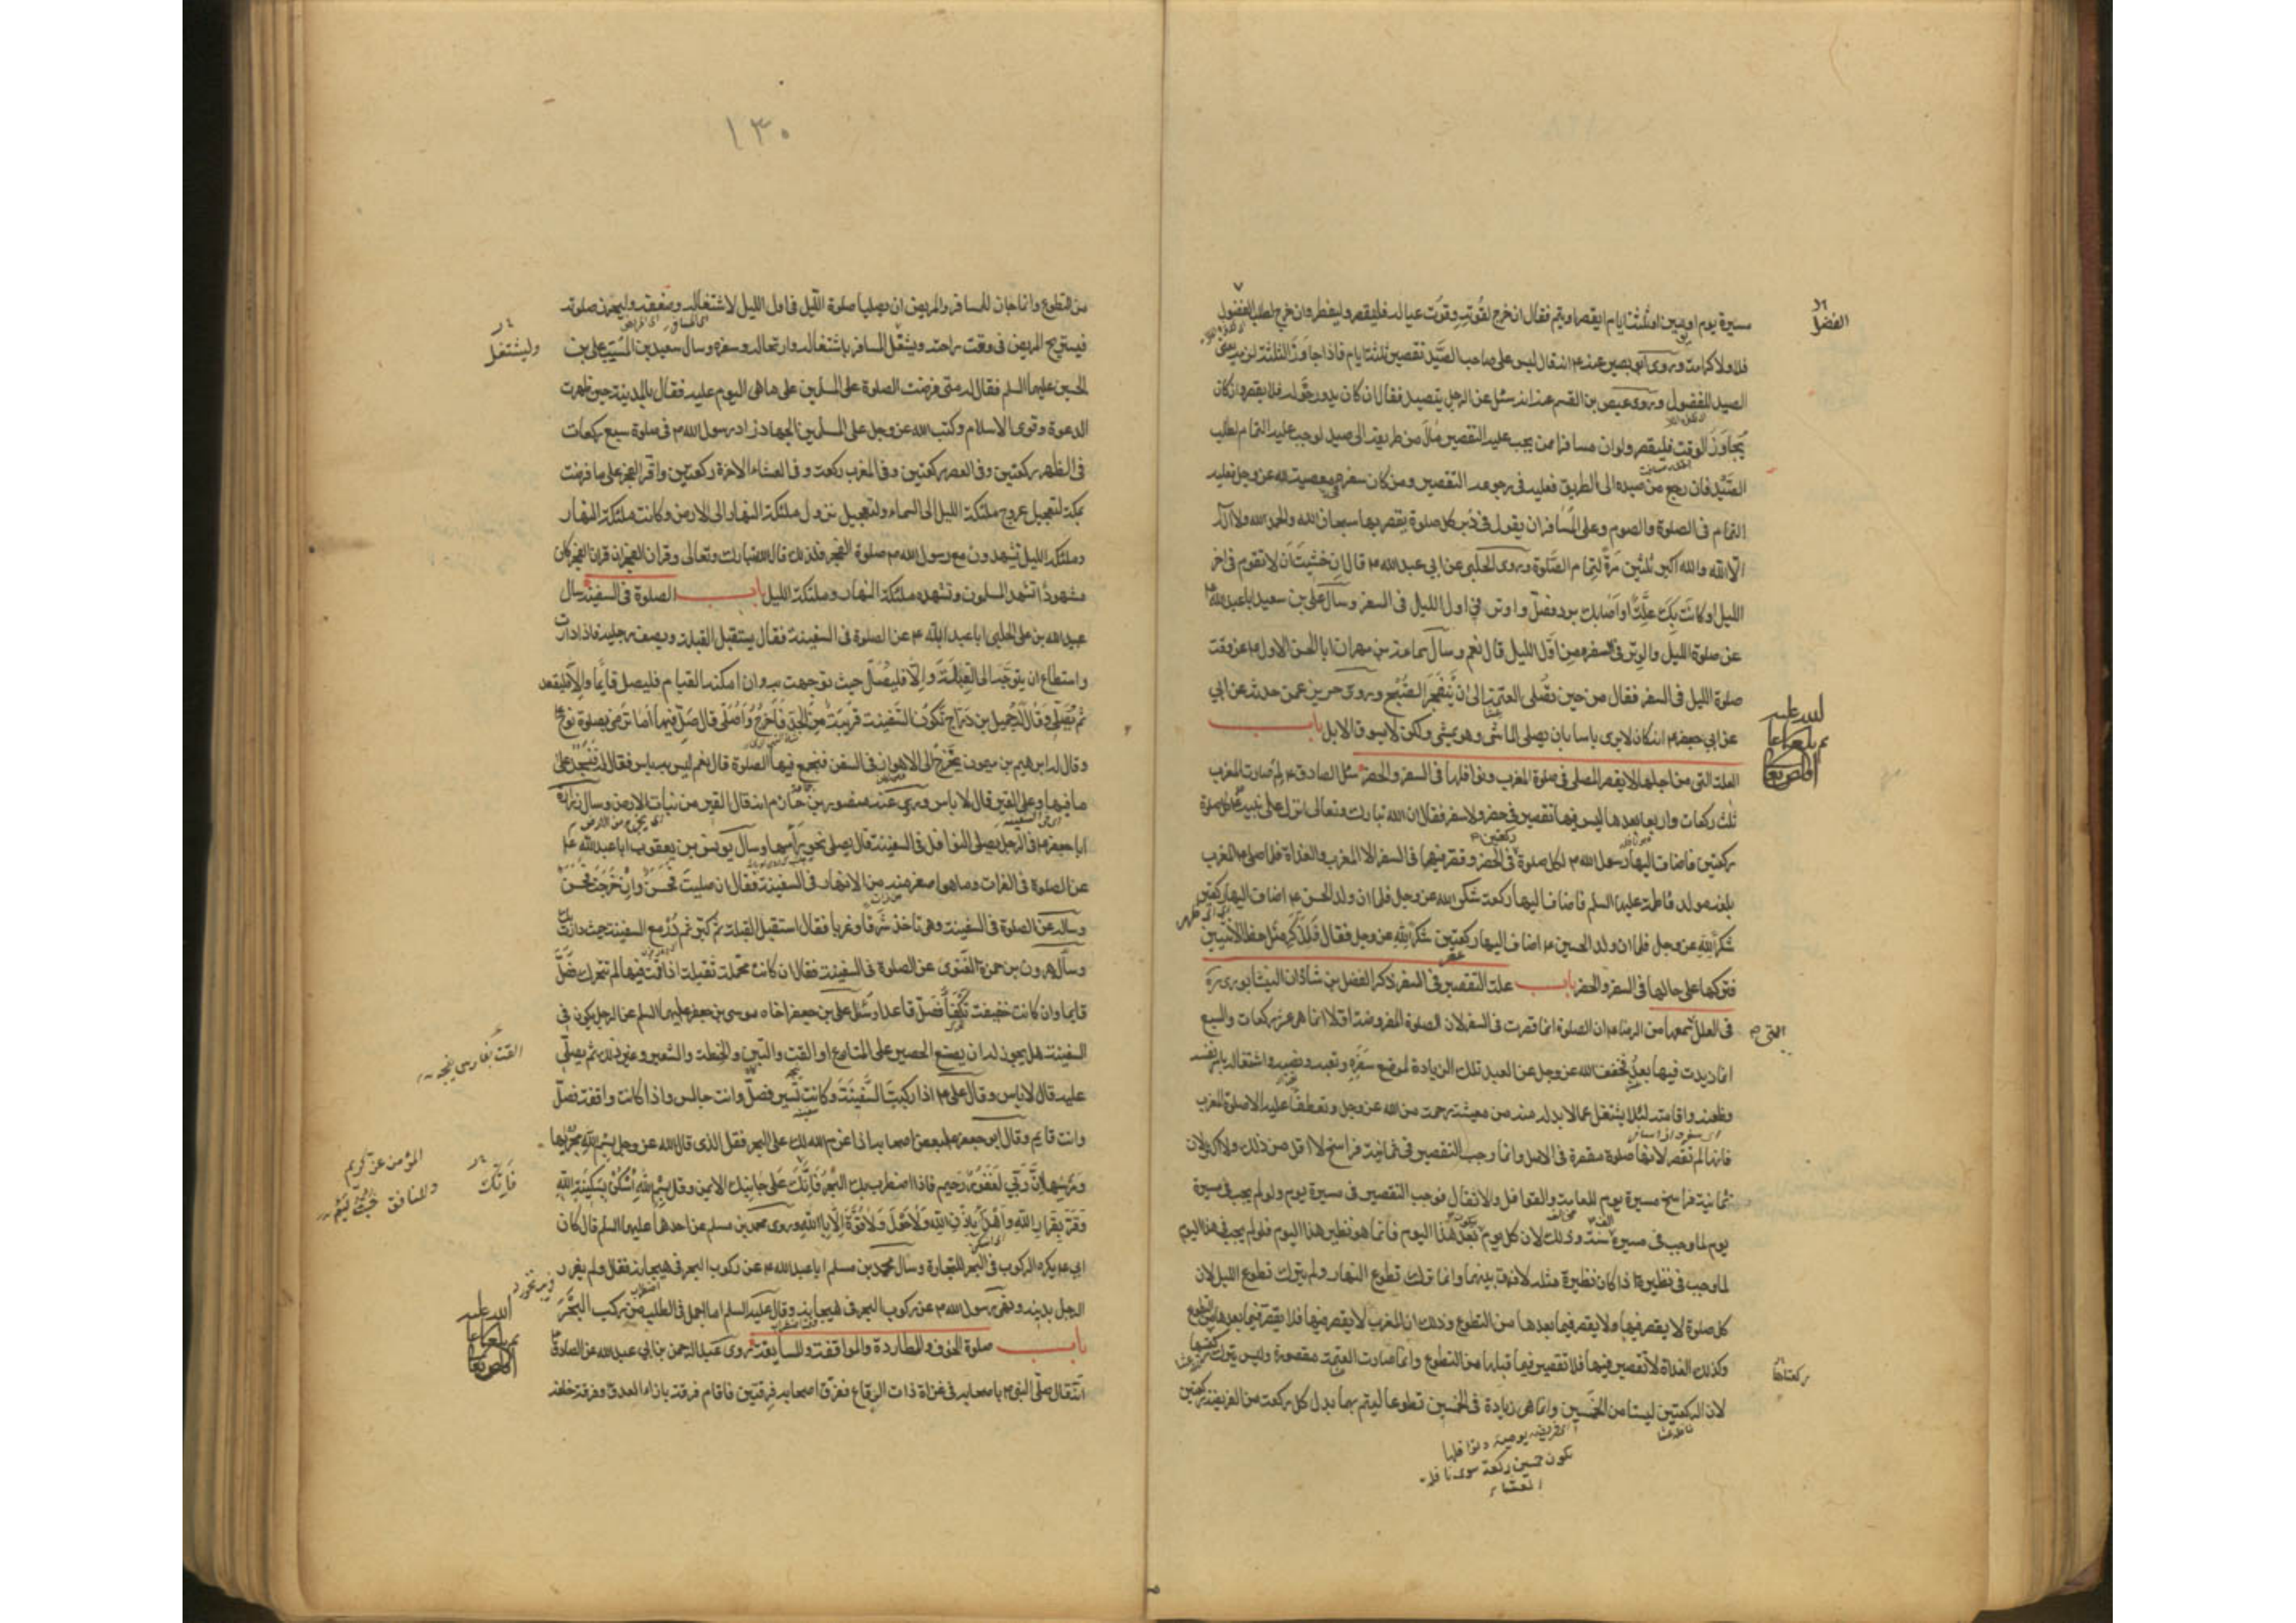 مسيرة يوم او يومين او ثلثة ايام ايقصر او يتم فقال ان خرج لقوته وقوت عياله فليقصر وليفطر وان خرج لطلب الفضول
الفضل
فلا ولا كرامة وروى ابو بصير عنه ع انه قال ليس على صاحب الصيد تقصير ثلثة ايام فاذا جاوز الثلثة لزمه يعنى
الصيد للفضول وروى عيص بن القسم عنه انه سئل عن الرجل يتصيد فقال ان كان يدور حوله فلا يقصر وان كان
يجاوز الوقت فليقصر ولو ان مسافرا ممن يجب عليه التقصير مال من طريقه الى صيد لوجب عليه التمام لطلب
الصيد فان رجع من صيده الى الطريق فعليه فى رجوعه التقصير ومن كان سفره معصية لله عز وجل فعليه
التمام فى الصلوة والصوم وعلى المسافر ان يقول فى دبر كل صلوة يقصر بها سبحان الله والحمد لله ولا اله
الا الله والله اكبر ثلثين مرة لتمام الصلوة وروى الحلبى عن ابى عبد الله ع قال ان خشيت ان لا تقوم فى اخر
الليل او كانت بك علة او اصابك برد فصل واوتر فى اول الليل فى السفر وسأل على بن سعيد ابا عبد الله ع
عن صلوة الليل والوتر فى السفر من اول الليل قال نعم وسأل سماعة بن مهران ابا الحسن الاول ع عن وقت
صلوة الليل فى السفر فقال من حين تصلى العتمة الى ان ينفجر الصبح وروى حريز عمن حدثه عن ابى
عن ابى جعفر ع انه كان لا يرى باسا بان يصلى الماشى وهو يمشى ولكن لا يسوق الابل باب
العلة التى من اجلها لا يقصر المصلى فى صلوة المغرب ونوافلها فى السفر والحضر سئل الصادق ع لم صارت المغرب
ثلث ركعات واربعا بعدها ليس فيها تقصير فى حضر ولا سفر فقال ان الله تبارك وتعالى انزل على نبيه كل صلوة
ركعتين فاضاف اليها رسول الله ص لكل صلوة ركعتين فى الحضر وقصر فيها فى السفر الا المغرب والغداة فلما صلى ع المغرب
بلغه مولد فاطمة عليها السلم فاضاف اليها ركعة شكرا لله عز وجل فلما ان ولد الحسن ع اضاف اليها ركعتين
شكرا لله عز وجل فلما ان ولد الحسين ع اضاف اليها ركعتين شكرا لله عز وجل فقال للذكر مثل حظ الانثيين
فتركها على حالها فى السفر والحضر باب علة التقصير فى السفر ذكر الفضل بن شاذان النيشابورى ره
فى العلل التى سمعها من الرضا ع ان الصلوة انما قصرت فى السفر لان الصلوة المفروضة اولا انما هى عشر ركعات والسبع
انما زيدت فيها بعد فخفف الله عز وجل عن العبد تلك الزيادة لموضع سفره وتعبه ونصبه واشتغاله بامر نفسه
وظعنه واقامته لئلا يشتغل عما لا بد له منه من معيشته رحمة من الله عز وجل وتعطفا عليه الا صلوة المغرب
فانها لم تقصر لانها صلوة مقصرة فى الاصل وانما وجب التقصير فى ثمانية فراسخ لا اقل من ذلك ولا اكثر لان
ثمانية فراسخ مسيرة يوم للعامة والقوافل والاثقال فوجب التقصير فى مسيرة يوم ولو لم يجب فى مسيرة
يوم لما وجب فى مسيرة سنة وذلك لان كل يوم يكون بعد هذا اليوم فانما هو نظير هذا اليوم فلو لم يجب فى هذا اليوم
لما وجب فى نظيره اذا كان نظيره مثله لا فرق بينهما وانما ترك تطوع النهار ولم يترك تطوع الليل لان
كل صلوة لا يقصر فيها ولا يقصر فيما بعدها من التطوع وذلك ان المغرب لا يقصر فيها فلا يقصر فيما بعدها من التطوع
وكذلك الغداة لا تقصير فيها فلا تقصير فيما قبلها من التطوع وانما صارت العتمة مقصورة وليس يترك ركعتيها
ركعتاها
لان الركعتين ليستا من الخمسين وانما هى زيادة فى الخمسين تطوعا ليتم بهما بدل كل ركعة من الفريضة ركعتين
اى فريضه يوميه ونوافلها
تكون خمسين ركعة سوى نافلة
العشاء
١٣٠
من التطوع وانما جاز للمسافر والمريض ان يصليا صلوة الليل فى اول الليل لاشتغاله وضعفه وليحرز صلوته
فيستريح المريض فى وقت راحته ويشتغل المسافر باشتغاله وارتحاله وسفره وسأل سعيد بن المسيب على بن
وليشتغل
الحسين عليهما السلم فقال له متى فرضت الصلوة على المسلمين على ما هى اليوم عليه فقال بالمدينة حين ظهرت
الدعوة وقوى الاسلام وكتب الله عز وجل على المسلمين الجهاد زاد رسول الله ص فى صلوة سبع ركعات
فى الظهر ركعتين وفى العصر ركعتين وفى المغرب ركعة وفى العشاء الاخرة ركعتين واقر الفجر على ما فرضت
بمكة لتعجيل عروج ملئكة الليل الى السماء ولتعجيل نزول ملئكة النهار الى الارض وكانت ملئكة النهار
وملئكة الليل تشهدون مع رسول الله ص صلوة الفجر فلذلك قال الله تبارك وتعالى وقران الفجر ان قران الفجر كان
مشهودا تشهد المسلمون وتشهده ملئكة النهار وملئكة الليل باب الصلوة فى السفينة سال
عبيد الله بن على الحلبى ابا عبد الله ع عن الصلوة فى السفينة فقال يستقبل القبلة ويصف رجليه فاذا دارت
واستطاع ان يتوجه الى القبلة والا فليصل حيث توجهت به وان امكنه القيام فليصل قايما والا فليقعد
ثم يصلى وقال له جميل بن دراج تكون السفينة قريبة من الجد فاخرج واصلى قال صل فيها اما ترضى بصلوة نوح ع
وقال له ابرهيم بن ميمون يخرج الى الاهواز فى السفن فنجمع فيها الصلوة قال نعم ليس به باس فقال له فنسجد على
ما فيها وعلى القير قال لا باس وروى عنه منصور بن حازم انه قال القير من نبات الارض وسأل زرارة
ابا جعفر ع فى الرجل يصلى النوافل فى السفينة قال يصلى نحو راسها وسأل يونس بن يعقوب ابا عبد الله ع
عن الصلوة فى الفرات وما هو اصغر منه من الانهار فى السفينة فقال ان صليت فحسن وان خرجت فحسن
وساله عن الصلوة فى السفينة وهى تاخذ شرقا وغربا فقال استقبل القبلة ثم كبر ثم در مع السفينة حيث دارت بك
وسأل هرون بن حمزة الغنوى عن الصلوة فى السفينة فقال ان كانت محملة ثقيلة اذا قمت فيها لم تتحرك فصل
قايما وان كانت خفيفة تكفأ فصل قاعدا وسئل على بن جعفر اخاه موسى بن جعفر عليهما السلم عن الرجل يكون فى
السفينة هل يجوز له ان يضع الحصير على المتاع او القت والتبن والحنطة والشعير وغير ذلك ثم يصلى
عليه قال لا باس وقال على ع اذا ركبت السفينة وكانت تسير فصل وانت جالس واذا كانت واقفة فصل
وانت قايم وقال ابو جعفر ع لبعض اصحابه اذا عزم الله لك على البحر فقل الذى قال الله عز وجل بسم الله مجريها
ومرسيها ان ربى لغفور رحيم فاذا اضطرب بك البحر فاتك على جانبك الايمن وقل بسم الله اسكن بسكينة الله
فاتك
المؤمن عز كريم
وقر بقرار الله واهدأ باذن الله ولا حول ولا قوة الا بالله وروى محمد بن مسلم عن احدهما عليهما السلم قال كان
ابى ع يكره الركوب فى البحر للتجارة وسأل محمد بن مسلم ابا عبد الله ع عن ركوب البحر فى هيجانه فقال ولم يغرر
الرجل بدينه ونهى رسول الله ص عن ركوب البحر فى هيجانه وقال عليه السلم ما اجمل فى الطلب من ركب البحر
باب صلوة الخوف والمطاردة والمواقفة والمسايفة روى عبد الرحمن بن ابى عبد الله عن الصادق ع
انه قال صلى النبى ص باصحابه فى غزاة ذات الرقاع ففرق اصحابه فرقتين فاقام فرقة بازاء العدو وفرقة خلفه